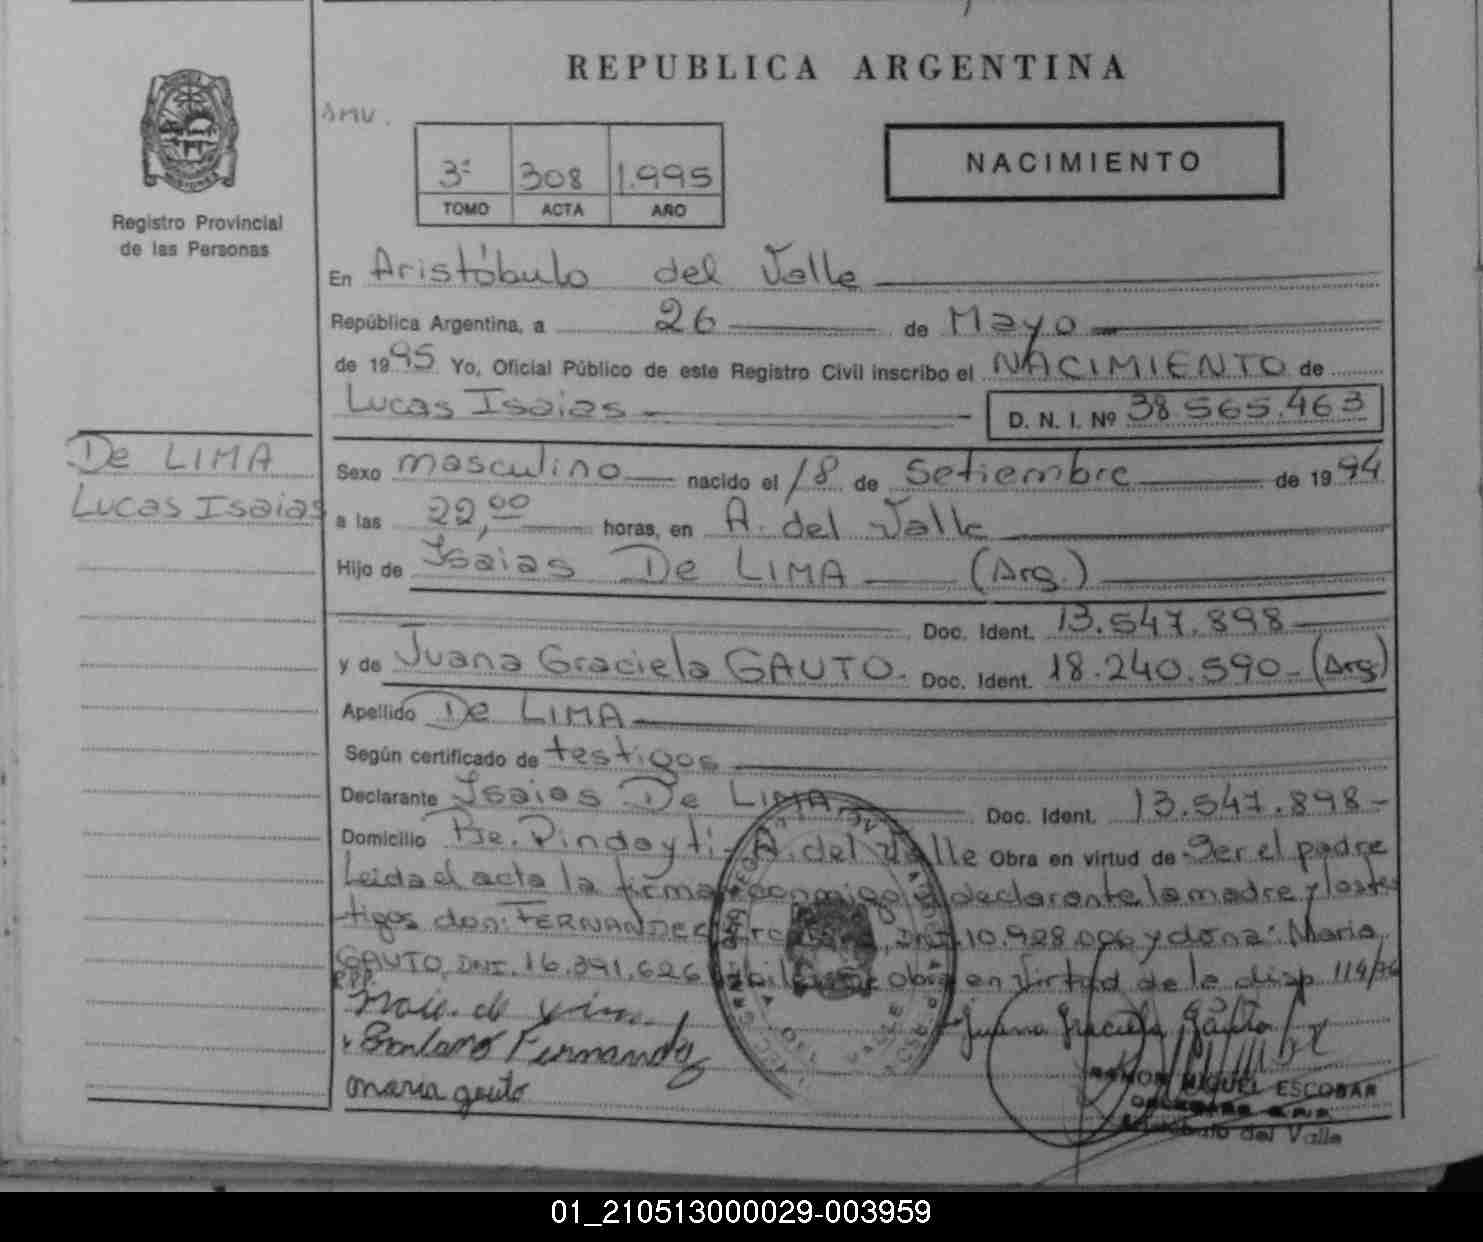 REPUBLICA ARGENTINA
SMU.
3º 308 1.995
TOMO ACTA AÑO
NACIMIENTO
Registro Provincial
de las Personas
En Aristóbulo del Valle
República Argentina, a 26 de Mayo
de 1995 Yo, Oficial Público de este Registro Civil inscribo el NACIMIENTO de
Lucas Isaias D. N. I. Nº 38.565.463
De LIMA
Lucas Isaias
Sexo masculino nacido el 18 de Setiembre de 1994
a las 22,00 horas, en A. del Valle
Hijo de Isaias De LIMA (Arg.)
Doc. Ident. 13.547.898
y de Juana Graciela GAUTO. Doc. Ident. 18.240.590 (Arg)
Apellido De LIMA
Según certificado de testigos
Declarante Isaias De LIMA Doc. Ident. 13.547.898-
Domicilio Pje. Pindayti - A. del Valle Obra en virtud de Ser el padre
Leida el acta la firma conmigo el declarante, la madre y los tes
tigos don: FERNANDEZ DNI. 10.928.006 y doña: Maria
GAUTO, DNI. 16.391.626 obra en virtud de la disp. 114/76
Juana Graciela Gauto
Fernandez
maria gauto
RAMON MIGUEL ESCOBAR
Aristobulo del Valle
01_210513000029-003959